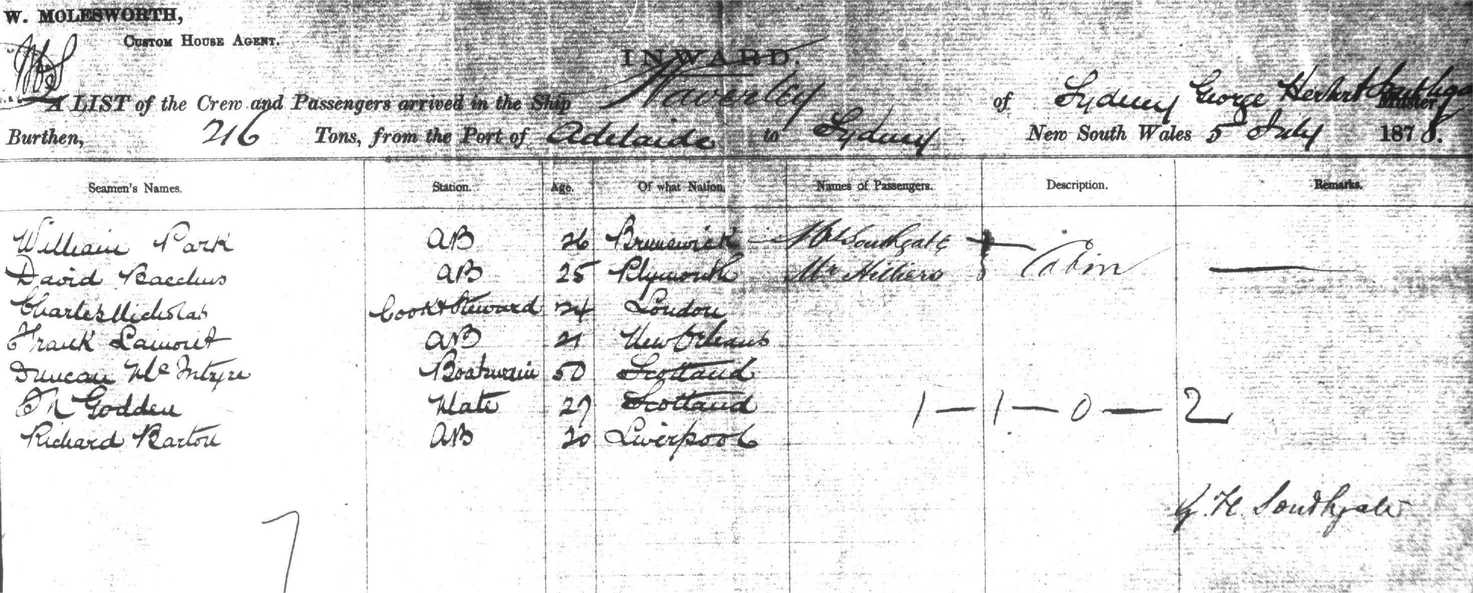 W. MOLESWORTH,
CUSTOM HOUSE AGENT.
INWARD.
A LIST of the Crew and Passengers arrived in the Ship Waverley of Sydney George Herbert Southgate Master,
Burthen, 216 Tons, from the Port of Adelaide to Sydney New South Wales 5 July 1878.
Seamen's Names. Station. Age. Of what Nation. Names of Passengers. Description. Remarks.
William Park AB 26 Brunswick Mrs Southgate
David Bacchus AB 25 Plymouth Mr Hilliers Cabin
Charles Nicholas Cook & Steward 24 London
Frank Lamont AB 21 New Orleans
Duncan McIntyre Boatswain 50 Scotland
Godden Mate 27 Scotland 1 — 1 — 0 — 2
Richard Barton AB 20 Liverpool
G. H. Southgate
7